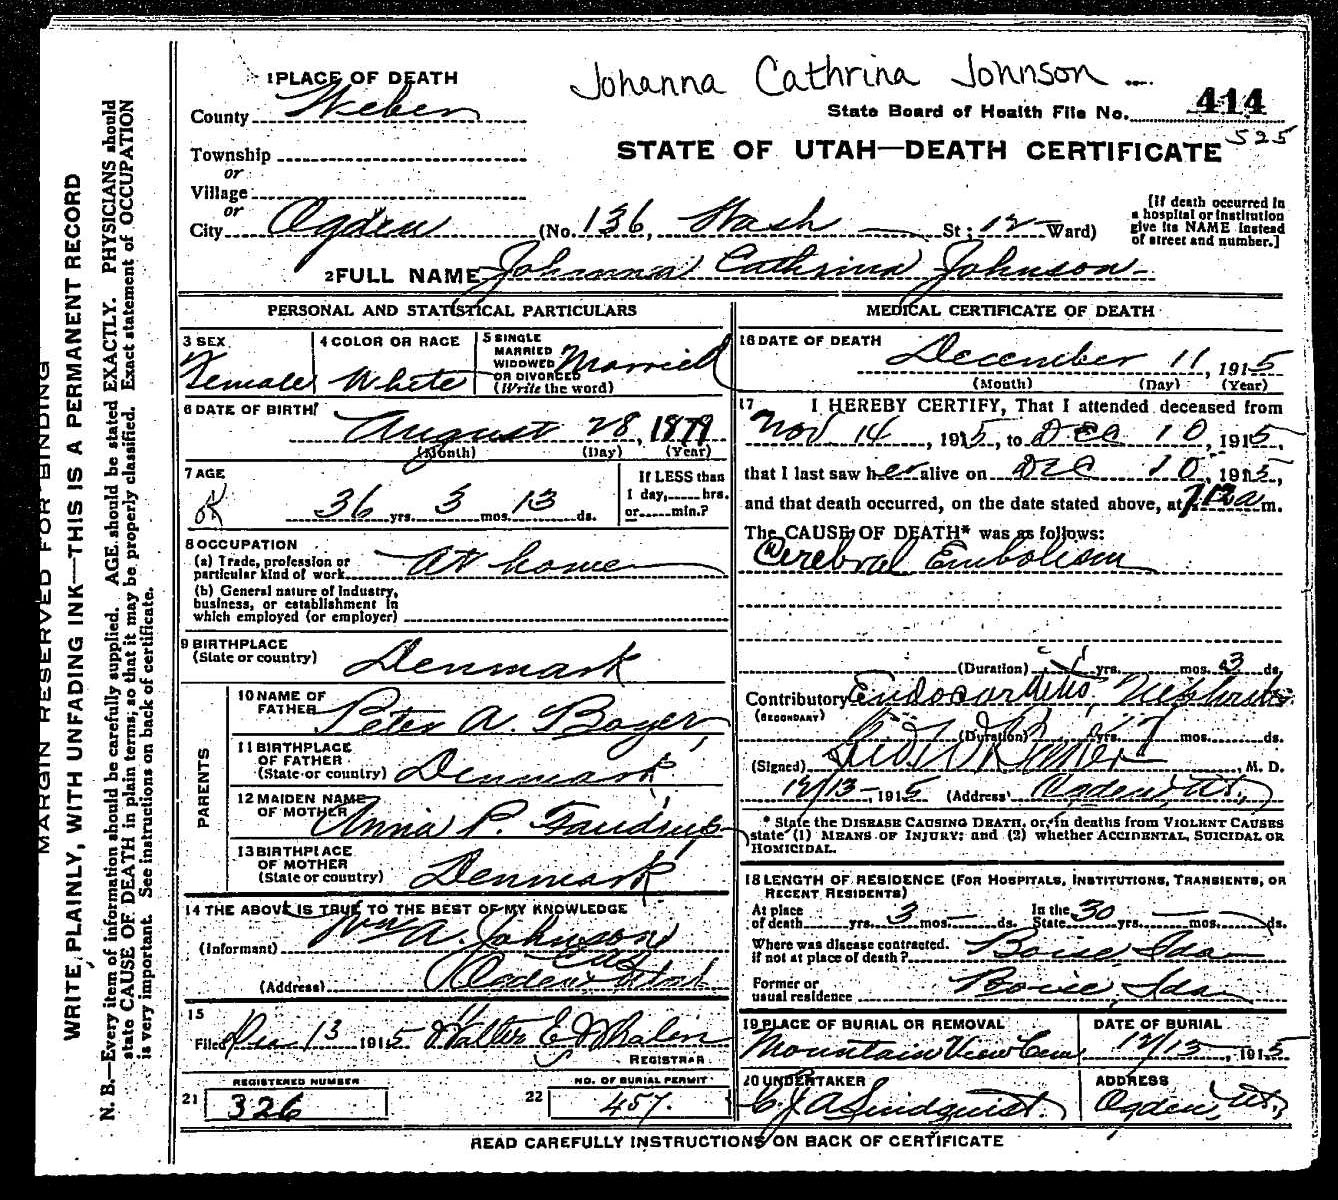 Johanna Cathrina Johnson
1 PLACE OF DEATH
County Weber
State Board of Health File No. 414
525
Township
or
Village
or
STATE OF UTAH—DEATH CERTIFICATE
City Ogden (No. 136, Wash St; 12 Ward)
[If death occurred in
a hospital or institution
give its NAME instead
of street and number.]
2 FULL NAME Johanna Cathrina Johnson
PERSONAL AND STATISTICAL PARTICULARS
3 SEX
Female
4 COLOR OR RACE
White
5 SINGLE
MARRIED
WIDOWED
OR DIVORCED
(Write the word)
Married
6 DATE OF BIRTH
August 28, 1879
(Month) (Day) (Year)
7 AGE
36 yrs. 3 mos. 13 ds.
If LESS than
1 day, hrs.
or min.?
8 OCCUPATION
(a) Trade, profession or
particular kind of work At home
(b) General nature of industry,
business, or establishment in
which employed (or employer)
9 BIRTHPLACE
(State or country) Denmark
PARENTS
10 NAME OF
FATHER Peter A. Boyer
11 BIRTHPLACE
OF FATHER
(State or country) Denmark
12 MAIDEN NAME
OF MOTHER Anna P.
13 BIRTHPLACE
OF MOTHER
(State or country) Denmark
14 THE ABOVE IS TRUE TO THE BEST OF MY KNOWLEDGE
(Informant) Wm A. Johnson
(Address) Ogden City Utah
15
Filed Dec 13 1915 Walter E Whalin
REGISTRAR
REGISTERED NUMBER
21 326
NO. OF BURIAL PERMIT
22 457.
MEDICAL CERTIFICATE OF DEATH
16 DATE OF DEATH
December 11, 1915
(Month) (Day) (Year)
17 I HEREBY CERTIFY, That I attended deceased from
Nov 14, 1915, to Dec 10, 1915,
that I last saw her alive on Dec 10, 1915,
and that death occurred, on the date stated above, at 7 12 a m.
The CAUSE OF DEATH* was as follows:
Cerebral Embolism
(Duration) yrs. mos. 3 ds.
Contributory Endocarditis, Nephritis
(SECONDARY)
(Duration) yrs. mos. ds.
(Signed) M. D.
12/13 1915 (Address) Ogden, Ut.,
* State the DISEASE CAUSING DEATH, or, in deaths from VIOLENT CAUSES
state (1) MEANS OF INJURY; and (2) whether ACCIDENTAL, SUICIDAL OR
HOMICIDAL.
18 LENGTH OF RESIDENCE (FOR HOSPITALS, INSTITUTIONS, TRANSIENTS, OR
RECENT RESIDENTS)
At place
of death yrs. 3 mos. ds. In the
State 30 yrs. mos. ds.
Where was disease contracted.
if not at place of death? Boise, Ida
Former or
usual residence Boise, Ida
19 PLACE OF BURIAL OR REMOVAL
Mountain View Cem
DATE OF BURIAL
12/13, 1915
20 UNDERTAKER
C. J. A. Lindquist.
ADDRESS
Ogden, Ut.
READ CAREFULLY INSTRUCTIONS ON BACK OF CERTIFICATE
MARGIN RESERVED FOR BINDING
WRITE PLAINLY, WITH UNFADING INK—THIS IS A PERMANENT RECORD
N. B.—Every item of information should be carefully supplied. AGE should be stated EXACTLY. PHYSICIANS should
state CAUSE OF DEATH in plain terms, so that it may be properly classified. Exact statement of OCCUPATION
is very important. See instructions on back of certificate.